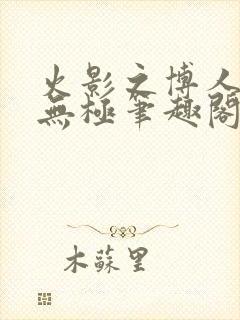 火影之博人
無極筆趣閣
木蘇里